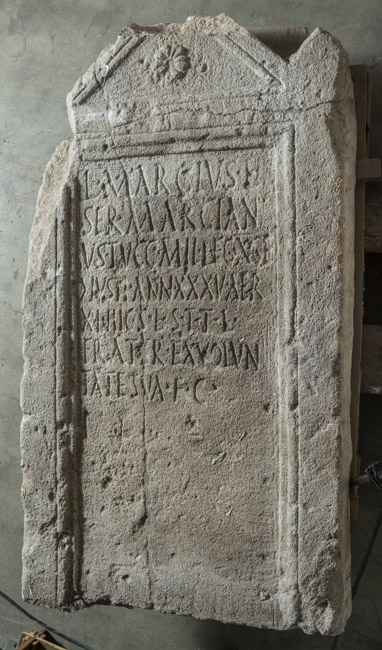 L·MARCIVS·F
SER MARCIAN
VS TVCC MIL LEG X G
ANN XXXV AER
XIIII H·S·E·S·T·T·L·
FRATER·EX VOLVN
TATE SVA·F·C·